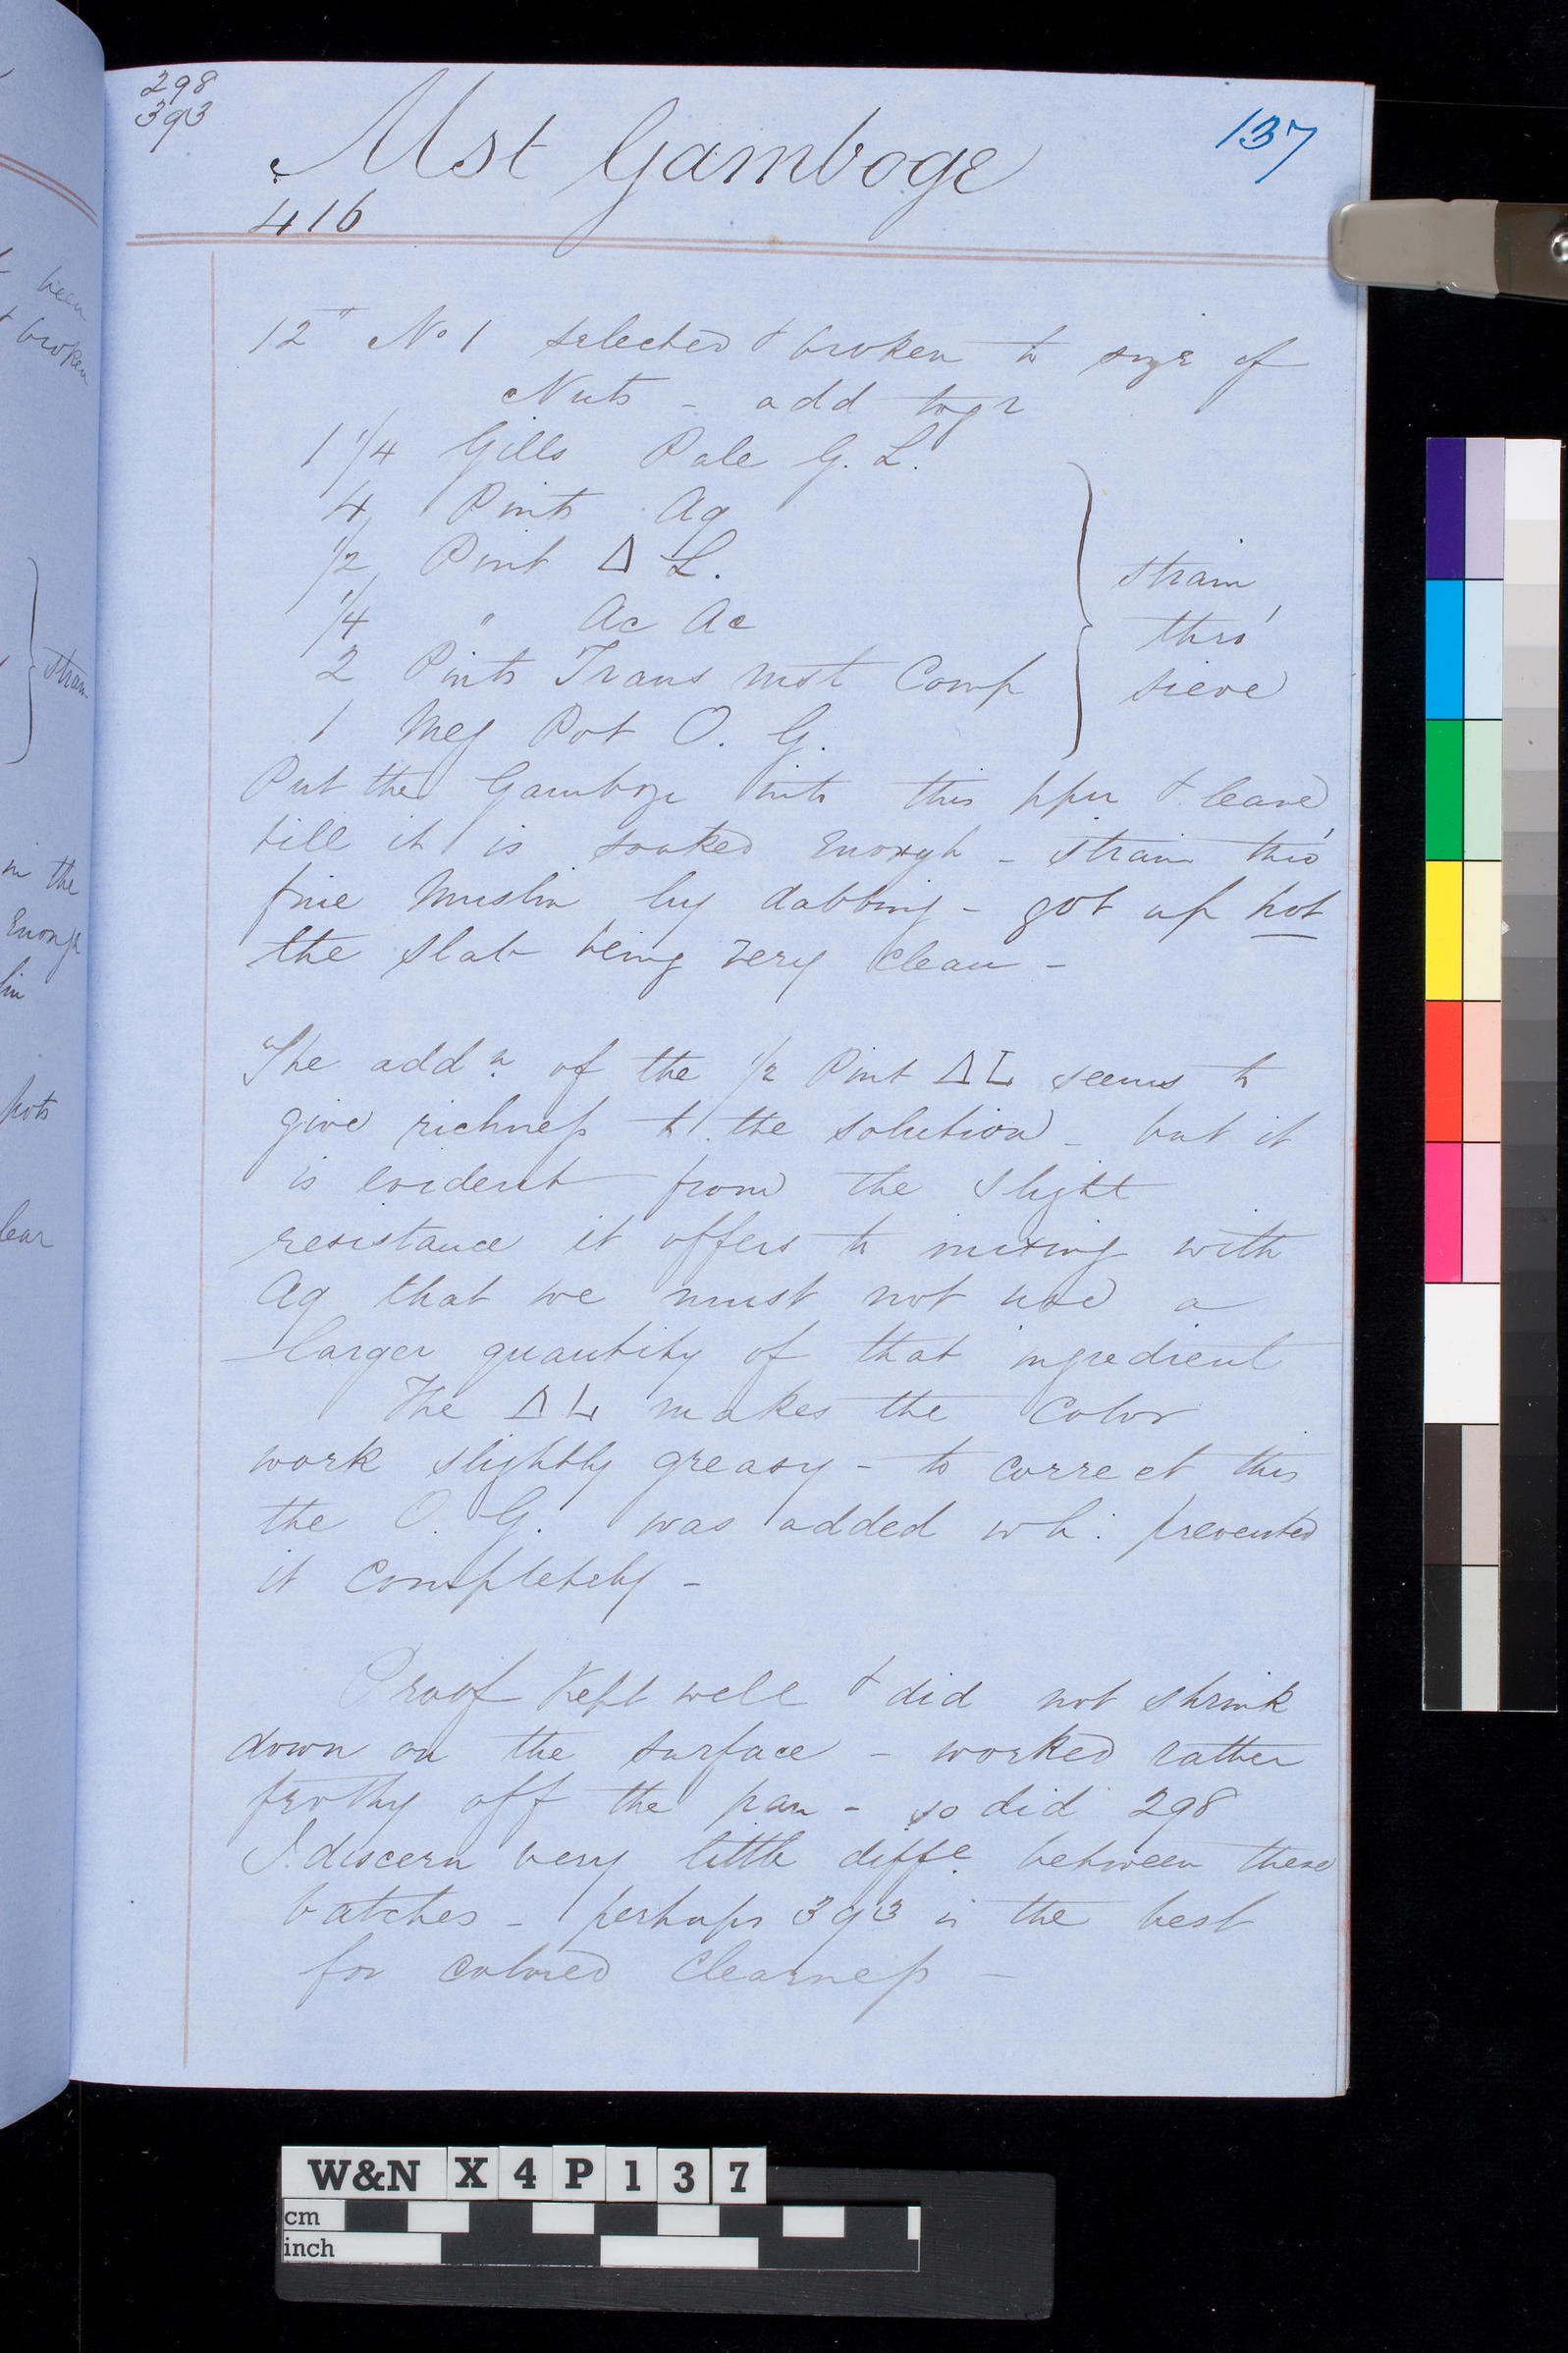 298
393
Mst Gamboge
137
416
12" No 1 selected & broken to size of
Nuts - add togr
1 1/4 Gills Pale G. L.
4 Pints Aq
1/2 Pint Δ L.
1/4 " Ac Ac
2 Pints Trans Mst Comp
1 Meg Pot O. G.
strain
thro'
sieve
Put the Gamboge into this & leave
till it is soaked enough - strain thro'
fine Muslin by dabbing - got up hot
the slab being very clean -
The addn. of the 1/2 Pint Δ L seems to
give richness to the solution - but it
is evident from the slight
resistance it offers to mixing with
Aq that we must not use a
larger quantity of that ingredient
The Δ L makes the Color
work slightly greasy - to correct this
the O. G. was added wh: prevented
it completely -
Proof Kept well & did not shrink
down on the surface - worked rather
frothy off the pan - so did 298
I discern very little diffe. between these
batches - perhaps 393 is the best
for colored clearness -
been
broken
strain
in the
enough
pots
lear
W&N X 4 P 1 3 7
cm
inch